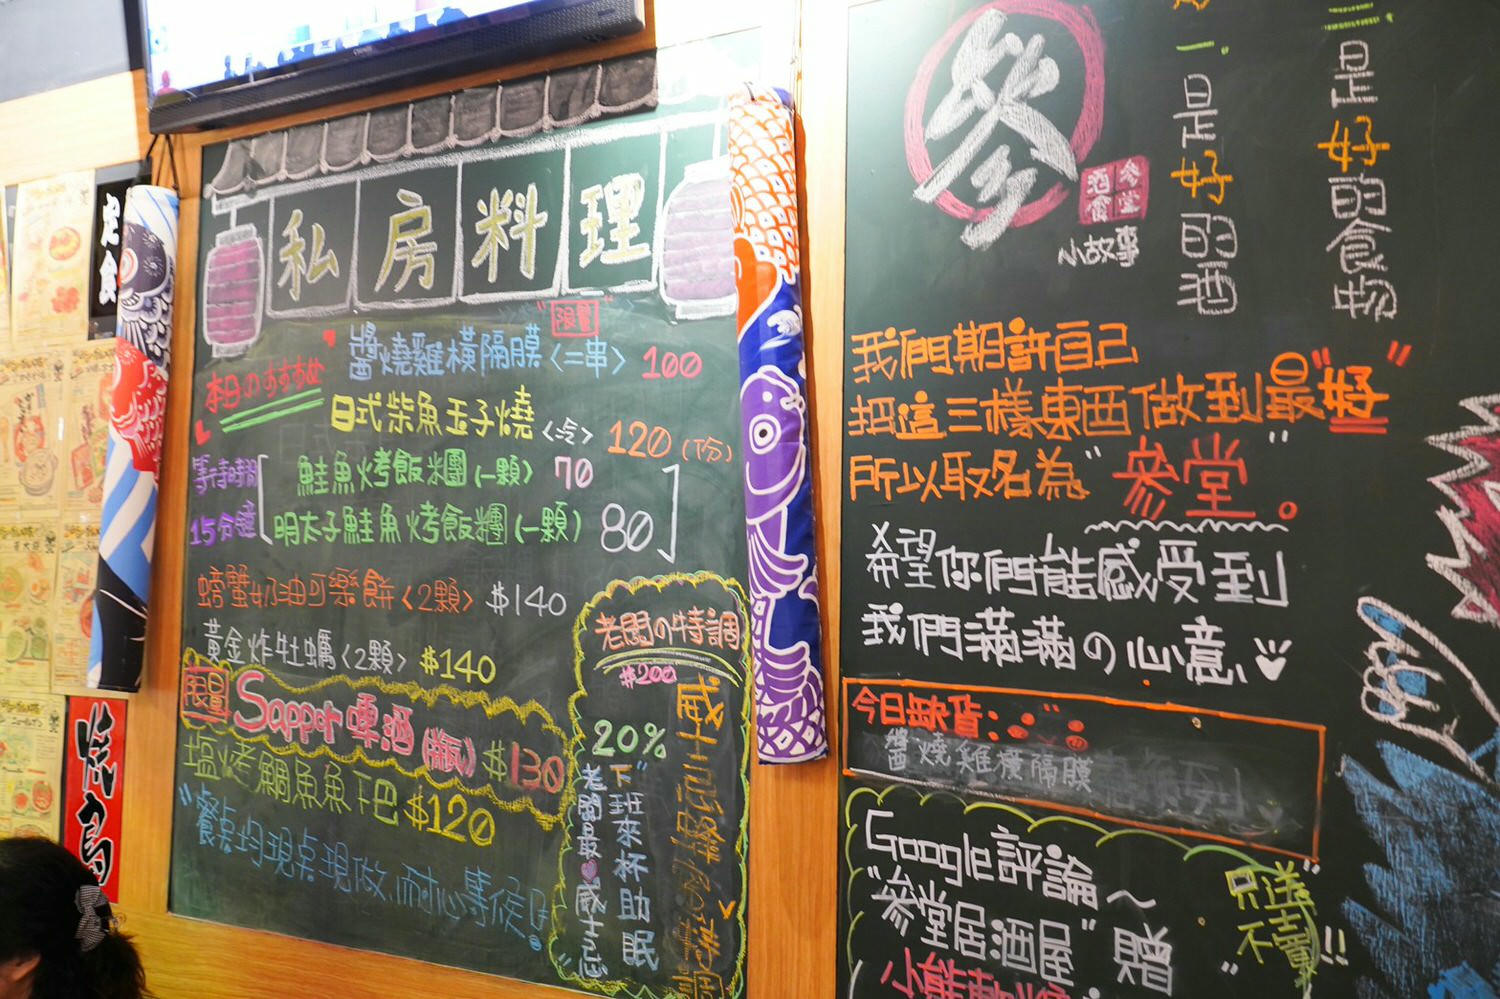 私房料理
"限量"
本日のおすすめ
醬燒雞橫隔膜<二串> 100
日式柴魚玉子燒<冷> 120 (下份)
等待時間
15分鐘
鮭魚烤飯糰(一顆) 70
明太子鮭魚烤飯糰(一顆) 80
螃蟹奶油可樂餅<2顆> $140
黃金炸牡蠣<2顆> $140
限量
Sappor啤酒(瓶) $130
塩烤鯛魚魚下巴 $120
"餐點均現點現做,耐心等候
老闆の特調
$200
威士忌
20%
"下班來杯助眠
老闆最愛威士忌"
定食
焼鳥
參
參堂酒食
小故事
一是好的酒
是好的食物
我們期許自己
把這三樣東西做到最"好"
所以取名為"參堂"。
希望你們能感受到
我們滿滿の心意
今日缺貨:
醬燒雞橫隔膜
Google評論~
"參堂居酒屋"贈
只送
不賣!!